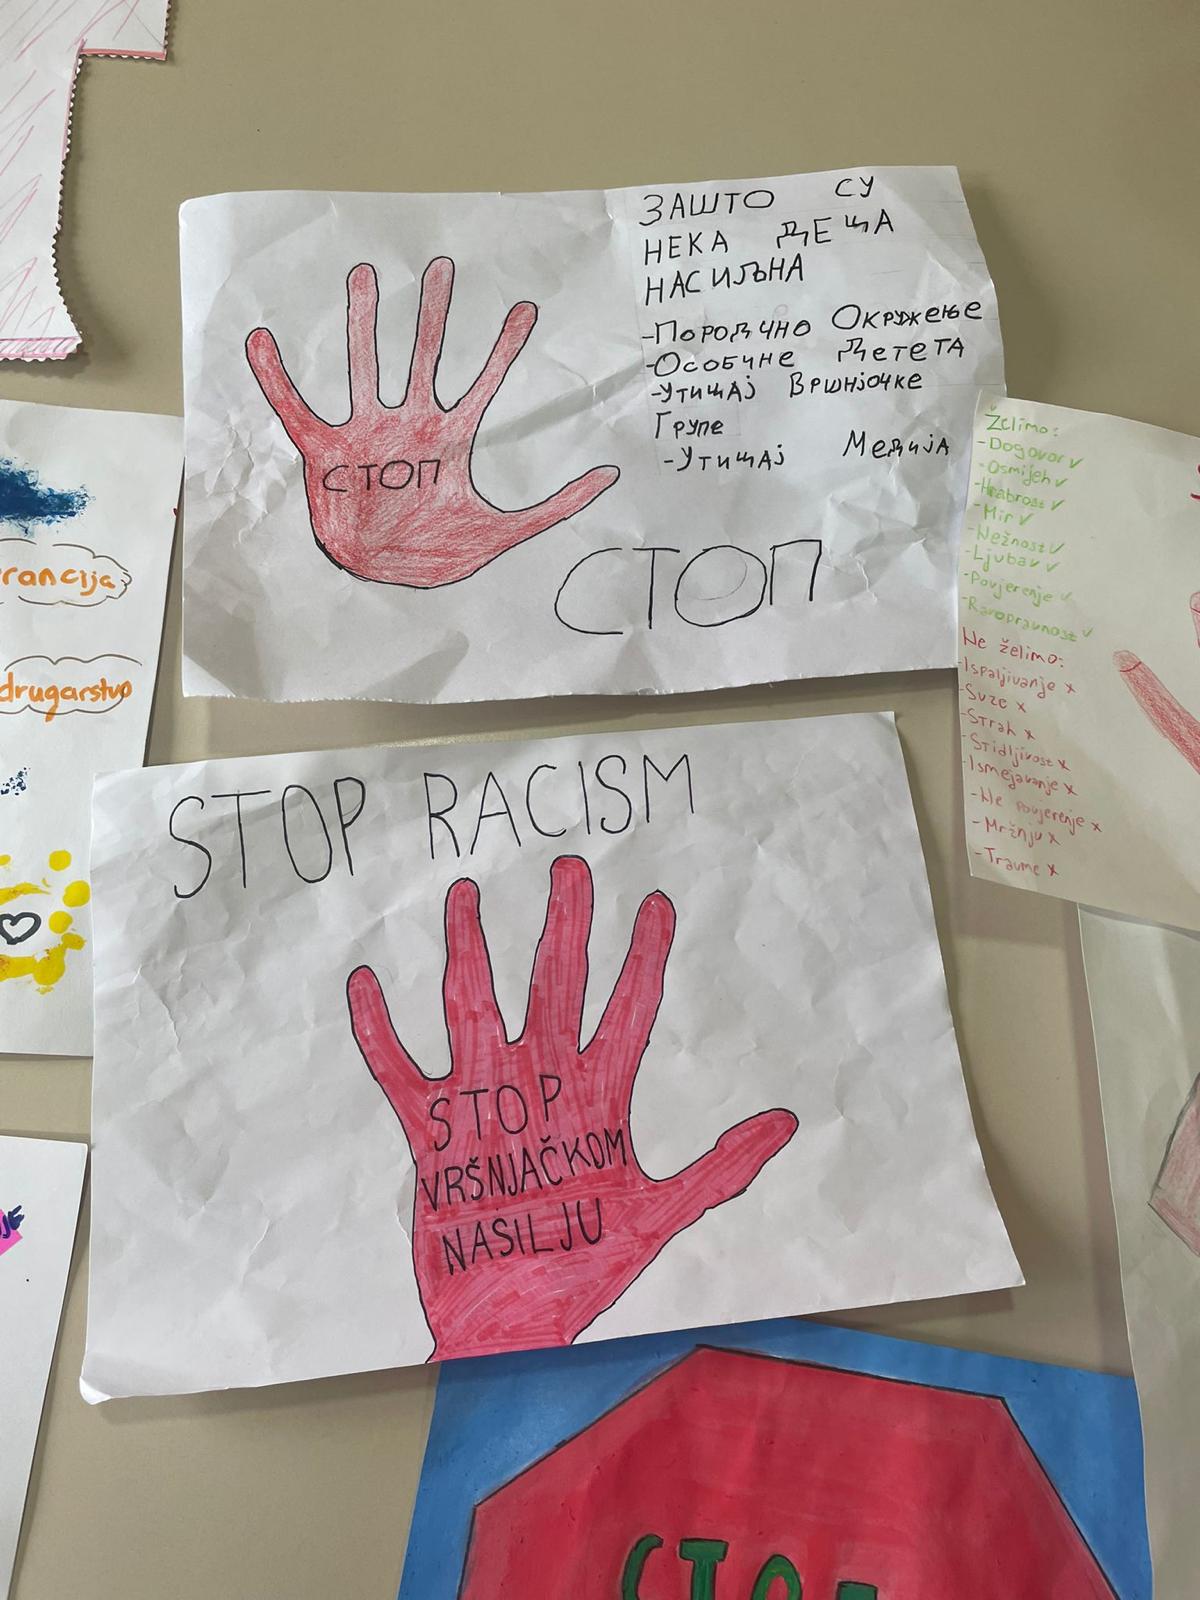 ЗАШТО СУ
НЕКА ДЕЦА
НАСИЉНА
-Породично Окружење
-Особине Детета
-Утицај Вршњачке
Групе
-Утицај Медија
СТОП
СТОП
STOP RACISM
STOP
VRŠNJAČKOM
NASILJU
rancija
drugarstvo
Želimo:
-Dogovor ✓
-Osmijeh ✓
-Hrabrost ✓
-Mir ✓
-Nežnost ✓
-Ljubav ✓
-Povjerenje ✓
-Ravopravnost ✓
Ne želimo:
-Ispaljivanje x
-Suze x
-Strah x
-Stidljivost x
-Ismejavanje x
-Ne povjerenje x
-Mržnju x
-Traume x